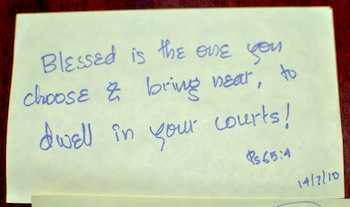 Blessed is the one you
choose & bring near, to
dwell in your courts!
Ps65:4
14/7/10